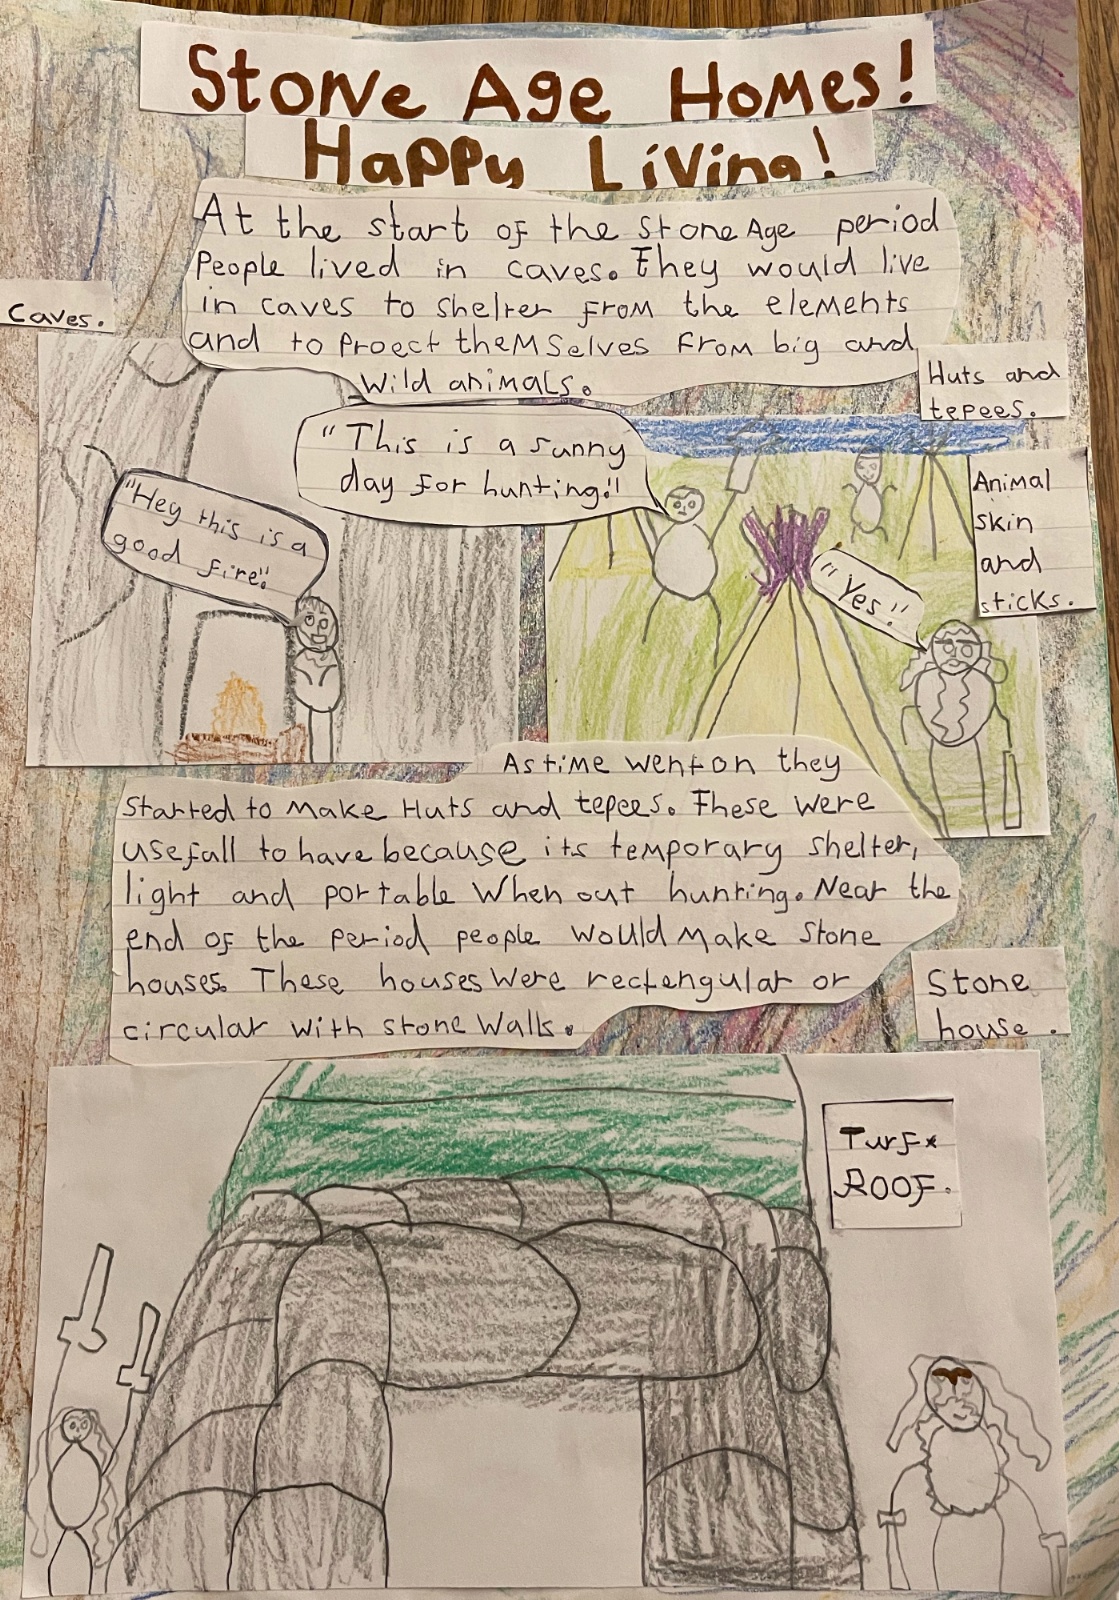 Stone Age Homes!
Happy Living!
At the start of the Stone Age period
People lived in caves. They would live
in caves to shelter from the elements
and to proect themselves from big and
wild animals.
Caves.
Huts and
tepees.
"This is a sunny
day for hunting."
"Hey this is a
good fire".
Animal
skin
and
sticks.
"Yes".
As time went on they
started to make Huts and tepees. These were
usefall to have because its temporary shelter,
light and portable when out hunting. Near the
end of the period people would make stone
houses. These houses were rectengular or
circular with stone walls.
Stone
house.
Turf
ROOF.